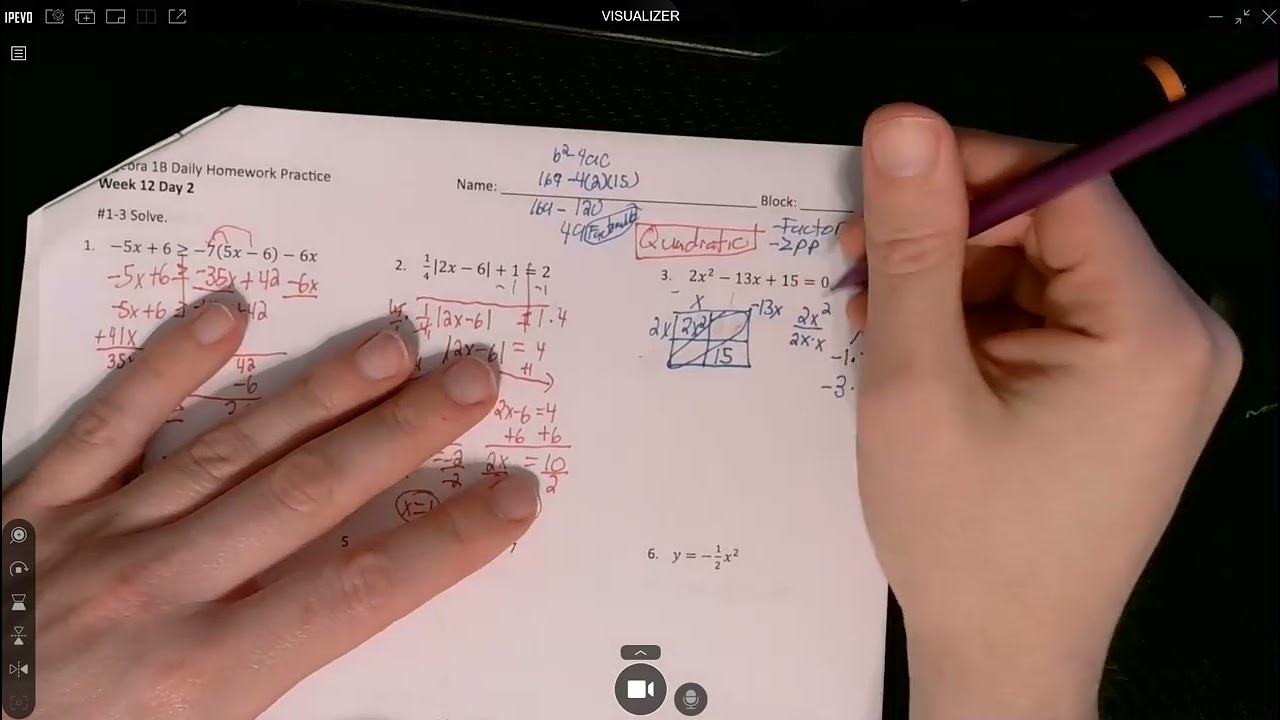 IPEVO
VISUALIZER
Algebra 1B Daily Homework Practice
Week 12 Day 2
Name:
Block:
b²-4ac
169-4(2)(15)
169-120
49 Factorable
Quadratic
-Factor
-ZPP
#1-3 Solve.
1. −5x + 6 ≥ −7(5x − 6) − 6x
-5x+6 ≥ -35x+42 -6x
-5x+6 ≥
+42
+41x
42
-6
2. ¼|2x − 6| + 1 = 2
-1 -1
¼|2x-6| = 1·4
|2x-6| = 4
+1
2x-6=4
+6 +6
2x = 10
2
-2
-2
x=1
3. 2x² − 13x + 15 = 0
x
-13x
2x 2x²
15
2x²
2x·x
-1·
-3·
5
6. y = −½x²